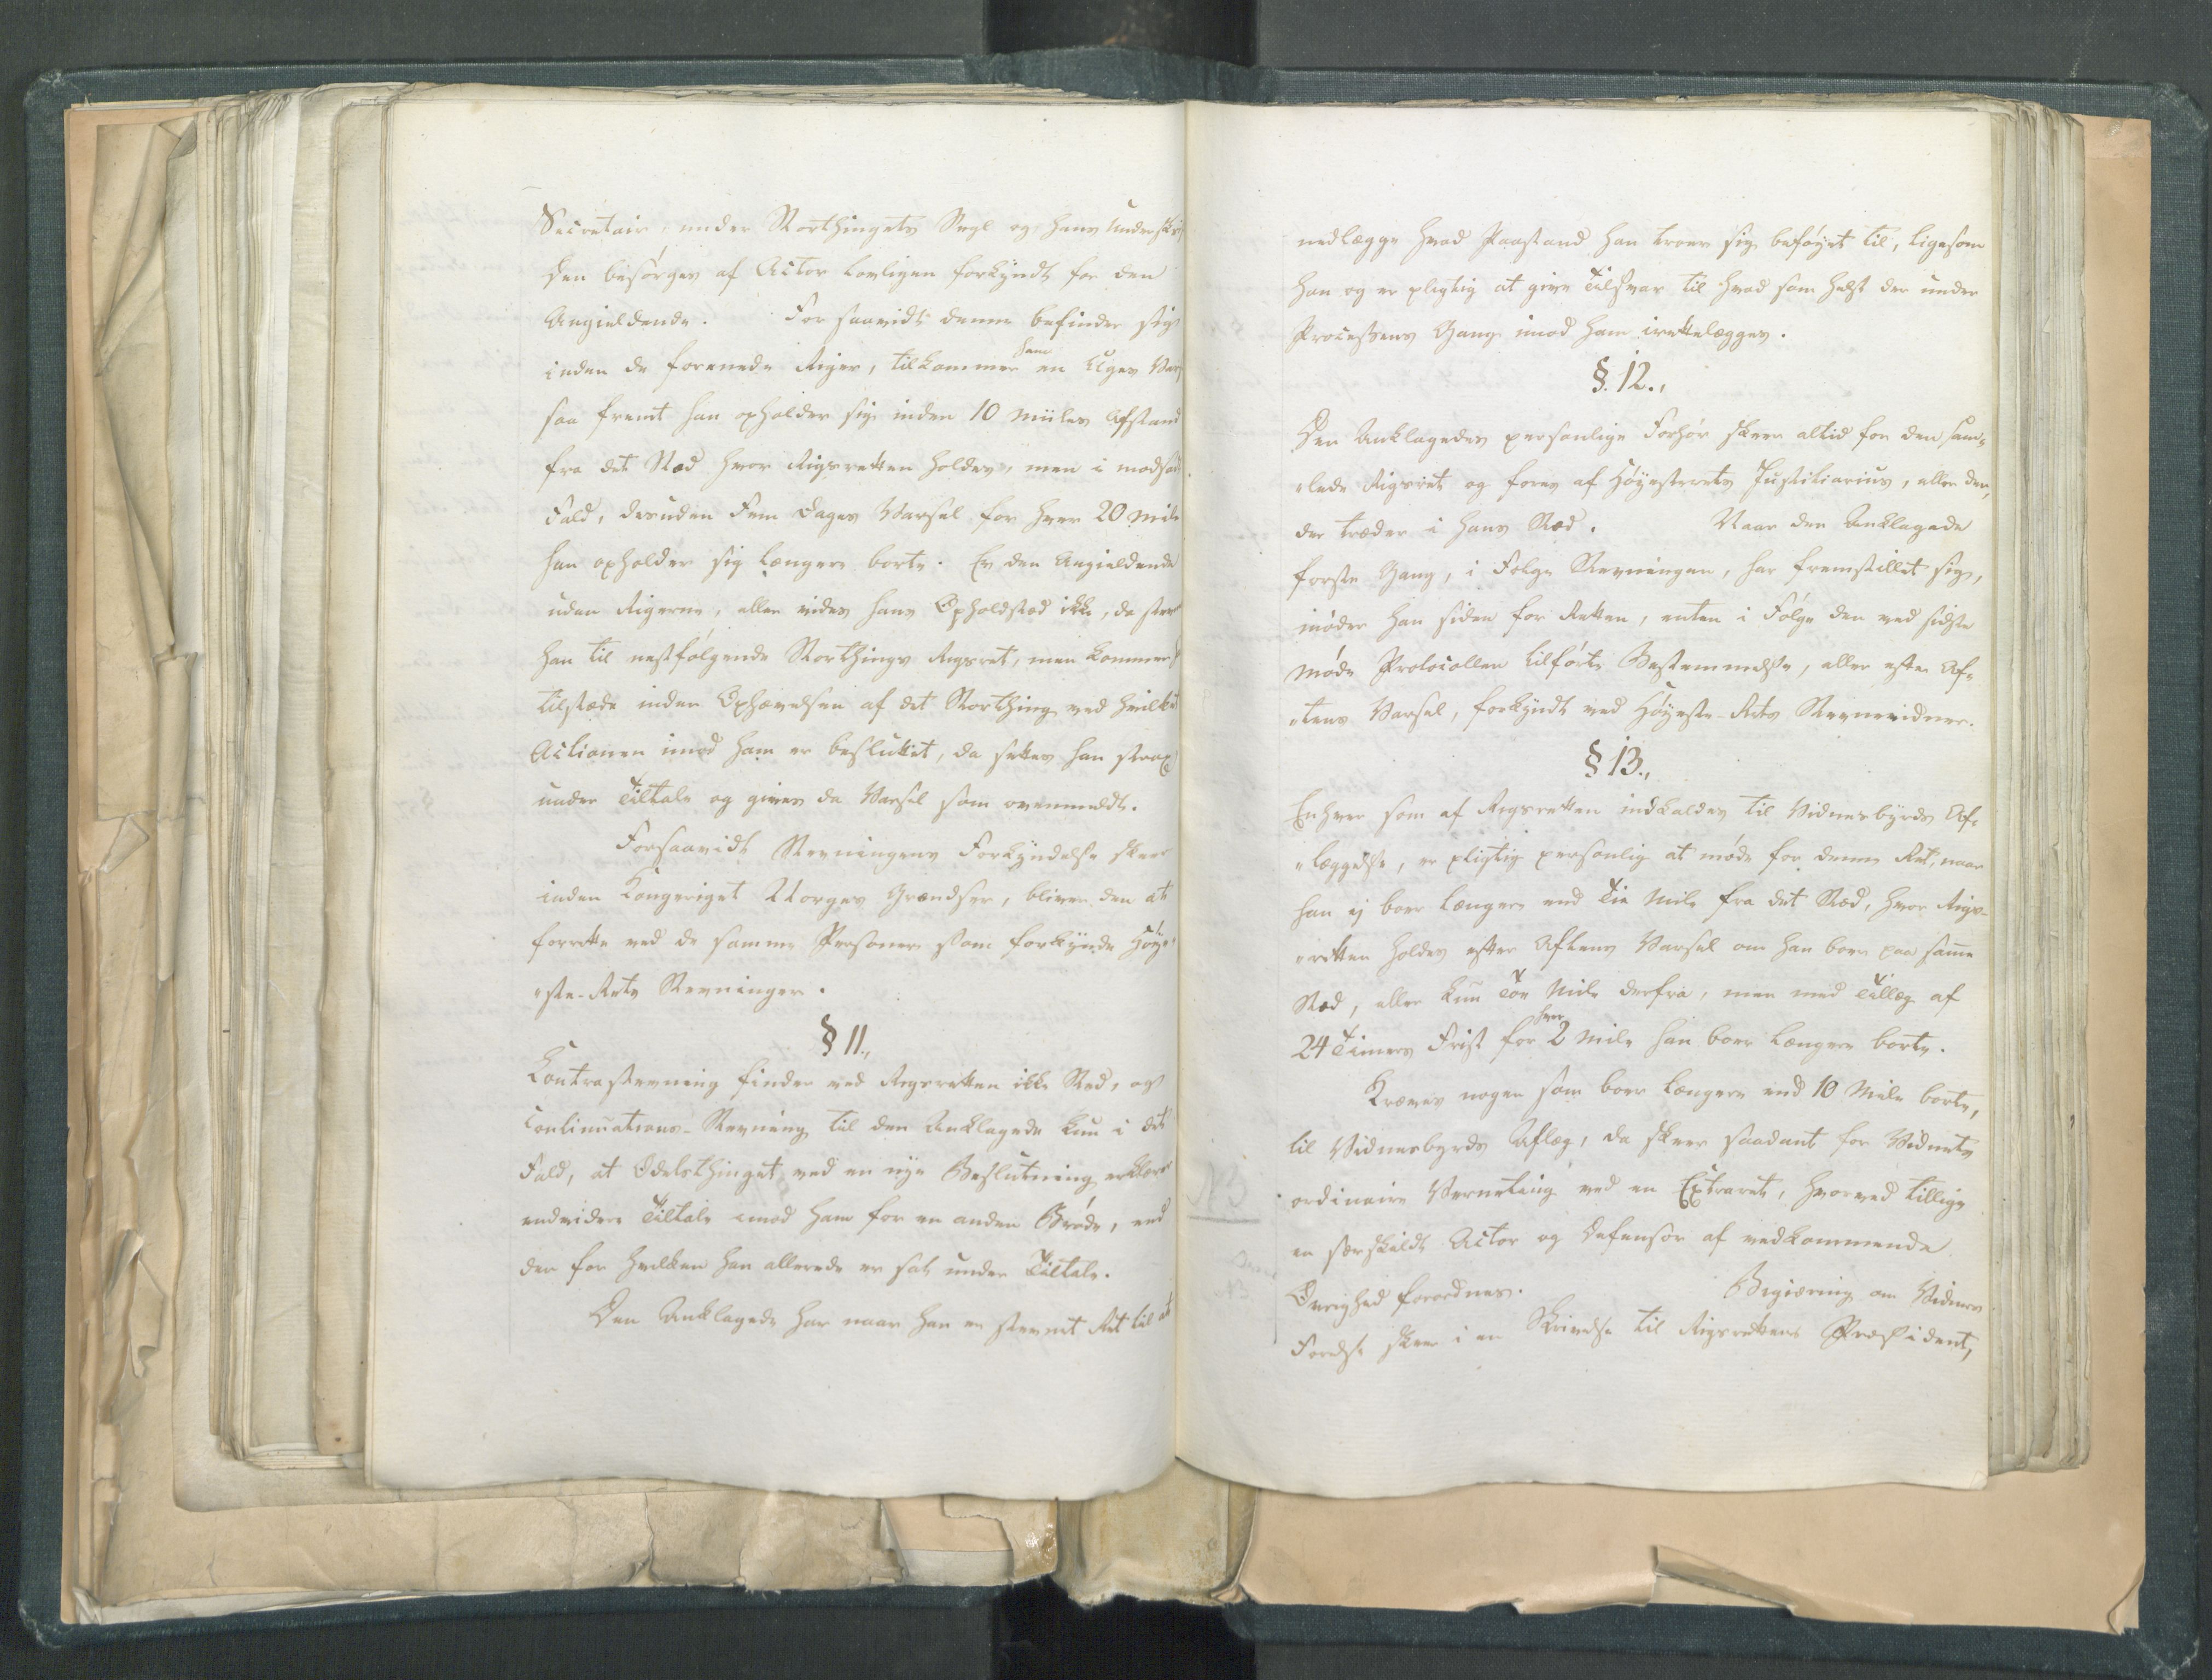 Secretair, under Storthingets Segl og hans Underskr
den besørges af Actor lovligen forkyndt for den
Angieldende. For saavidt denne befinder sig
inden de forenede Riger, tilkommer ham en Uges Var
saa fremt han opholder sig inden 10 Miiles Afstand
fra det Sted hvor Rigsretten holdes, men i modsat
Fald, desuden Fem Dages Varsel for hver 20 Mile
han opholder sig længere borte. Er den Angieldende
uden Rigerne, eller vides hans Opholdsted ikke, da
han til nestfølgende Storthings Rigsret, men kommer
tilstæde inden Ophævelsen af det Storthing ved hvilket
Actionen imod ham er besluttet, da settes han strax
under Tiltale og gives da Varsel som ovenmeldt.
Forsaavidt Stevningens Forkyndelse skeer
inden Kongeriget Norges Grændser, bliver den at
forrette ved de samme Personer som forkynde Høy-
"ste-Rets Stevninger.
§ 11.,
Contrastevning finder ved Rigsretten ikke Sted, og
Continuations-Stevning til den Anklagede kun i det
Fald, at Odelsthinget ved en nye Beslutning erklærer
endvidere Tiltale imod ham for en anden Brøde, end
den for hvilken han allerede er sat under Tiltale.
Den Anklagede har naar han er stevnet Ret til at
nedlægge hvad Paastand han troer sig beføyet til, ligesom
han og er pligtig at give Tilsvar til hvad som helst der under
Processens Gang imod ham irettelægges.
§. 12.,
Den Anklagedes personlige Forhør skeer altid for den sam-
"lede Rigsret og føres af Høyesterets Justitiarius, eller den,
der træder i hans Sted. Naar den Anklagede
første Gang, i Følge Stevningen, har fremstillet sig,
møder han siden for Retten, enten i Følge den ved sidste
Møde Protocollen tilførte Bestemmelse, eller efter Af-
"tens Varsel, forkyndt ved Høyeste-Rets Stevnevidner.
§ 13.,
Enhver som af Rigsretten indkaldes til Vidnesbyrds Af-
"læggelse, er pligtig personlig at møde for denne Ret, naar
han ej boer længere end Tie Mile fra det Sted, hvor Rigs-
"retten holdes efter Aftens Varsel om han boer paa samme
Sted, eller kun Toe Mile derfra, men med Tillæg af
24 Timers Frist for hver 2 Mile han boer længere borte.
Kræves nogen som boer længere end 10 Mile borte,
til Vidnesbyrds Aflæg, da skeer saadant for Vidnets
ordinaire Verneting ved en Extraret, hvorved tillige
en særskildt Actor og Defensor af vedkommende
Øvrighed forordnes. Begiæring om Vidners
Førelse skeer i en Skrivelse til Rigsrettens Præsident,
NB
NB.